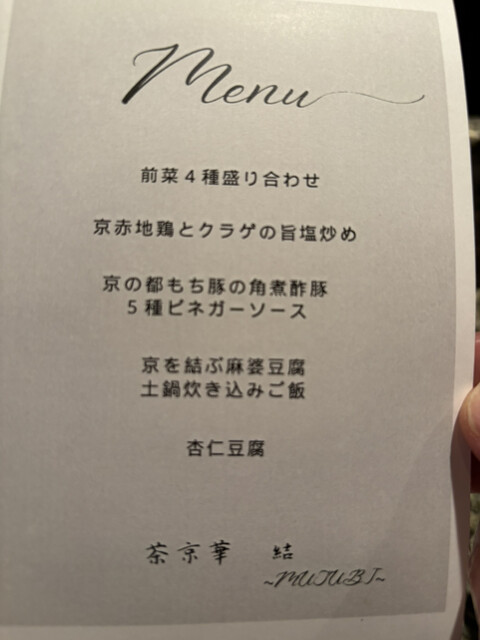 Menu
前菜4種盛り合わせ
京赤地鶏とクラゲの旨塩炒め
京の都もち豚の角煮酢豚
5種ビネガーソース
京を結ぶ麻婆豆腐
土鍋炊き込みご飯
杏仁豆腐
茶京華 結
~MUJUBI~